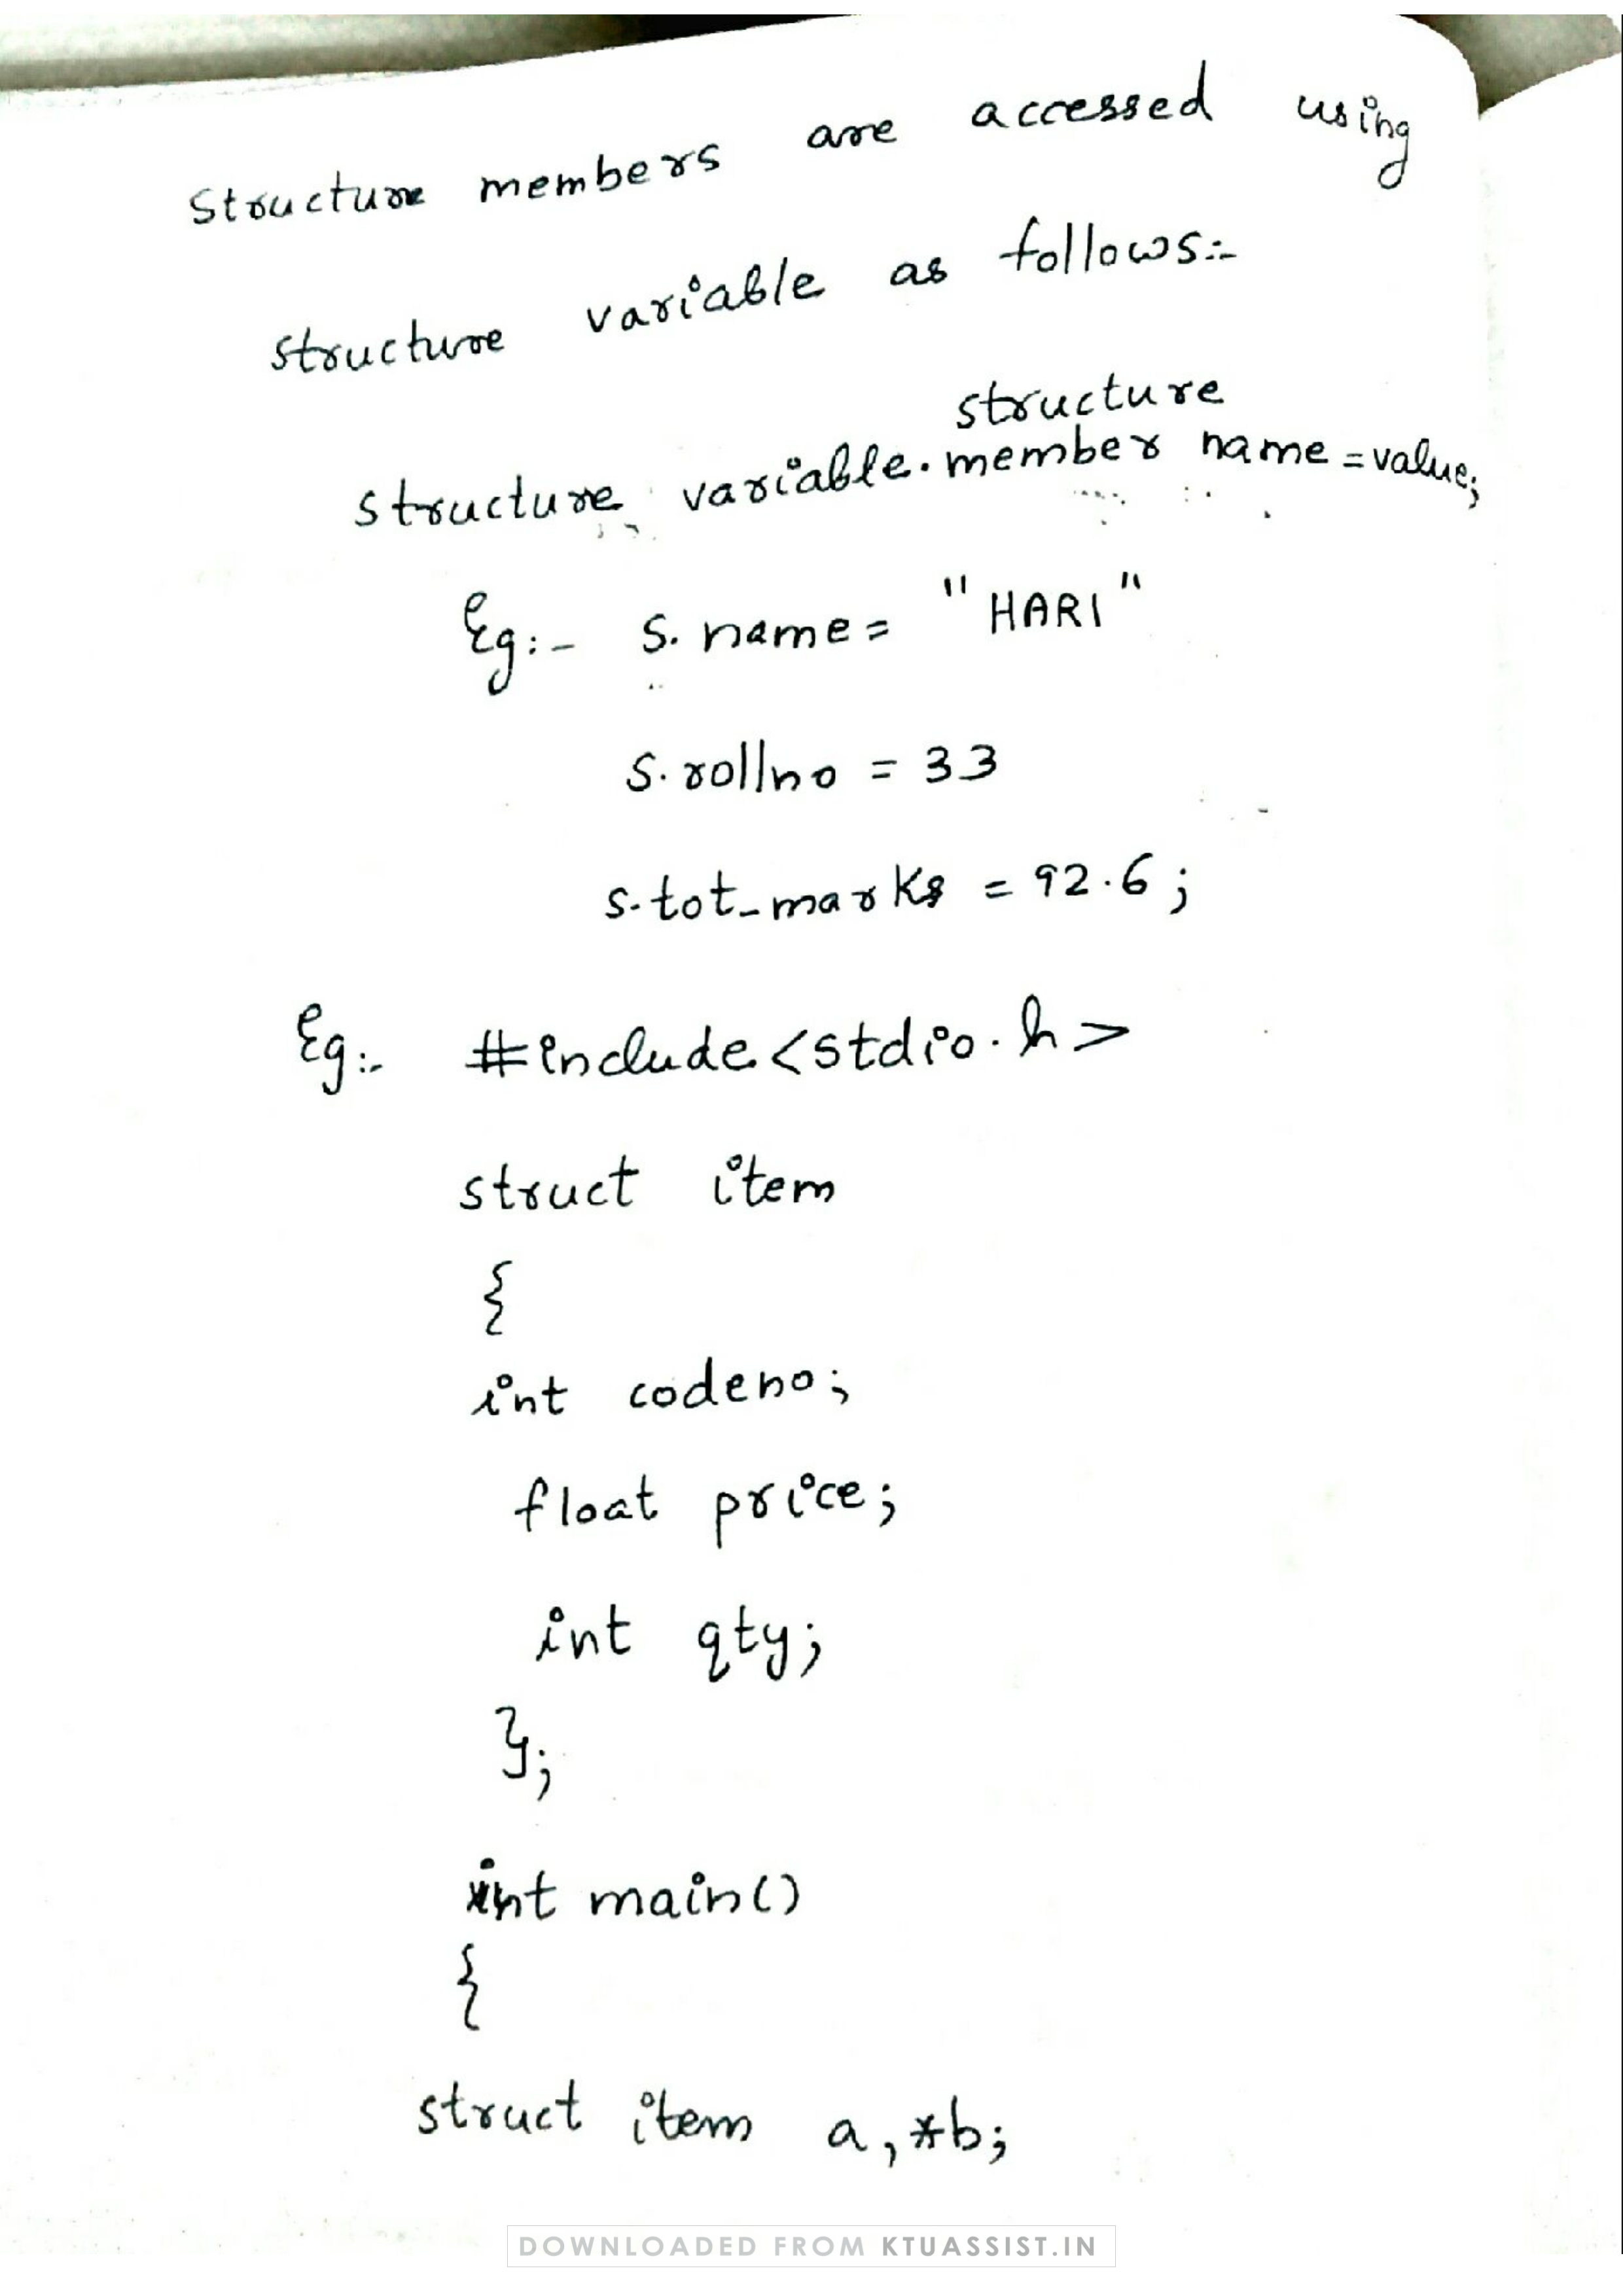 Structure members are accessed using
structure variable as follows:-
structure
structure variable.member name=value;
Eg:- s.name= "HARI"
s.rollno = 33
s.tot_marks = 92.6;
Eg:- #include<stdio.h>
struct item
{
int codeno;
float price;
int qty;
};
int main()
{
struct item a,*b;
DOWNLOADED FROM KTUASSIST.IN